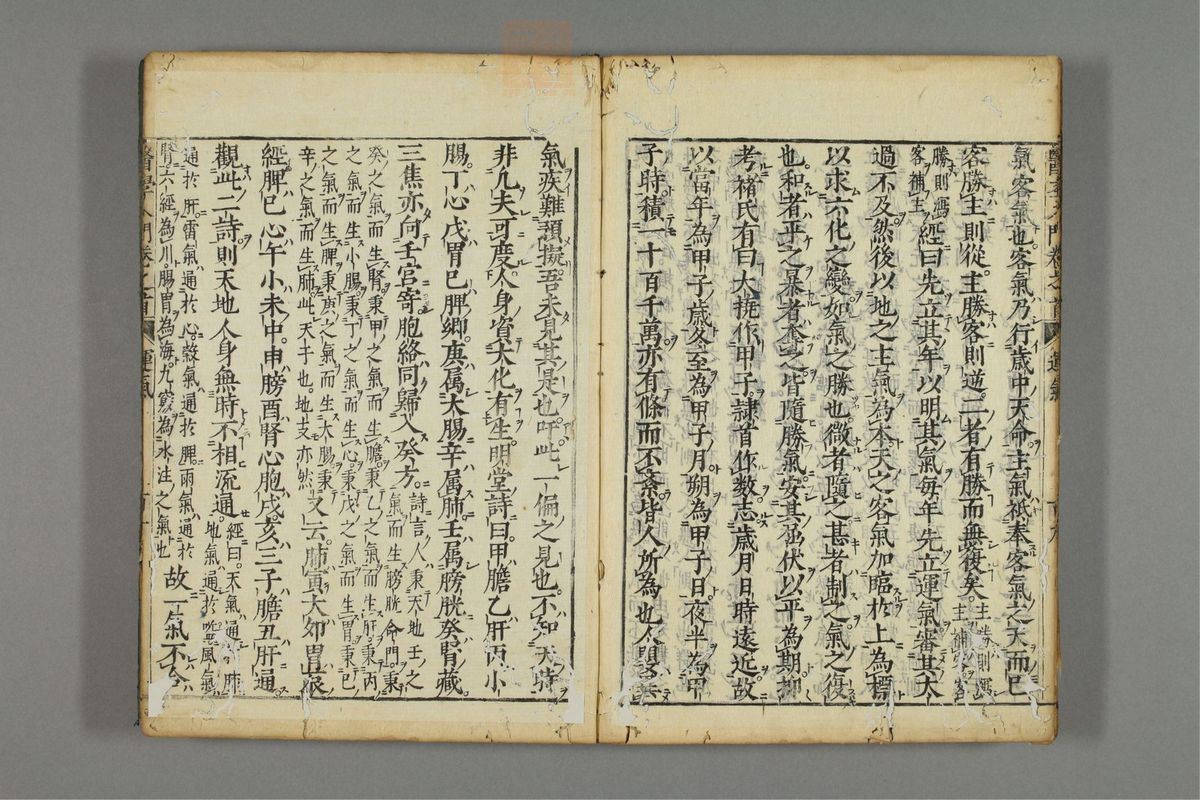 氣客氣也客氣乃行歲中天命主氣祇奉客氣之天而已
客勝主則從主勝客則逆二者有勝而無復矣主勝則瀉主補客
客勝則瀉客補主經曰先立其年以明其氣每年先立運氣審其太
過不及然後以地之主氣為本天之客氣加臨於上為標
以求六化之變如氣之勝也微者隨之甚者制之氣之復
也和者平之暴者奪之皆隨勝氣安其屈伏以平為期抑
考褚氏有曰大撓作甲子隸首作数志歲月日時遠近故
以當年為甲子歲冬至為甲子月朔為甲子日夜半為甲
子時積一十百千萬亦有條而不紊皆人所為也人
氣疾難預擬吾未見其是也吁此一偏之見也不知天時
非凡夫可度人身資大化有生明堂詩曰甲膽乙肝丙小
腸丁心戊胃巳脾鄉庚属大腸辛属肺壬属膀胱癸腎藏
三焦亦向壬宮寄胞絡同歸入癸方詩言人秉天地壬之氣而生膀胱命門秉
癸之氣而生腎秉甲之氣而生膽秉乙之氣而生肝秉丙
之氣而生小腸秉丁之氣而生心秉戊之氣而生胃秉巳
之氣而生脾秉庚之氣而生大腸秉
辛之氣而生肺此天干也地支亦然又云肺寅大卯胃辰
經脾巳心午小未中申膀酉腎心胞戌亥三子膽丑肝通
觀此二詩則天地人身無時不相流通經曰天氣通於肺地氣通於嗌風氣
通於肝雷氣通於心穀氣通於脾雨氣通於
腎六經為川腸胃為海九竅為水注之氣也故一氣不合
醫學入門卷之首 運氣